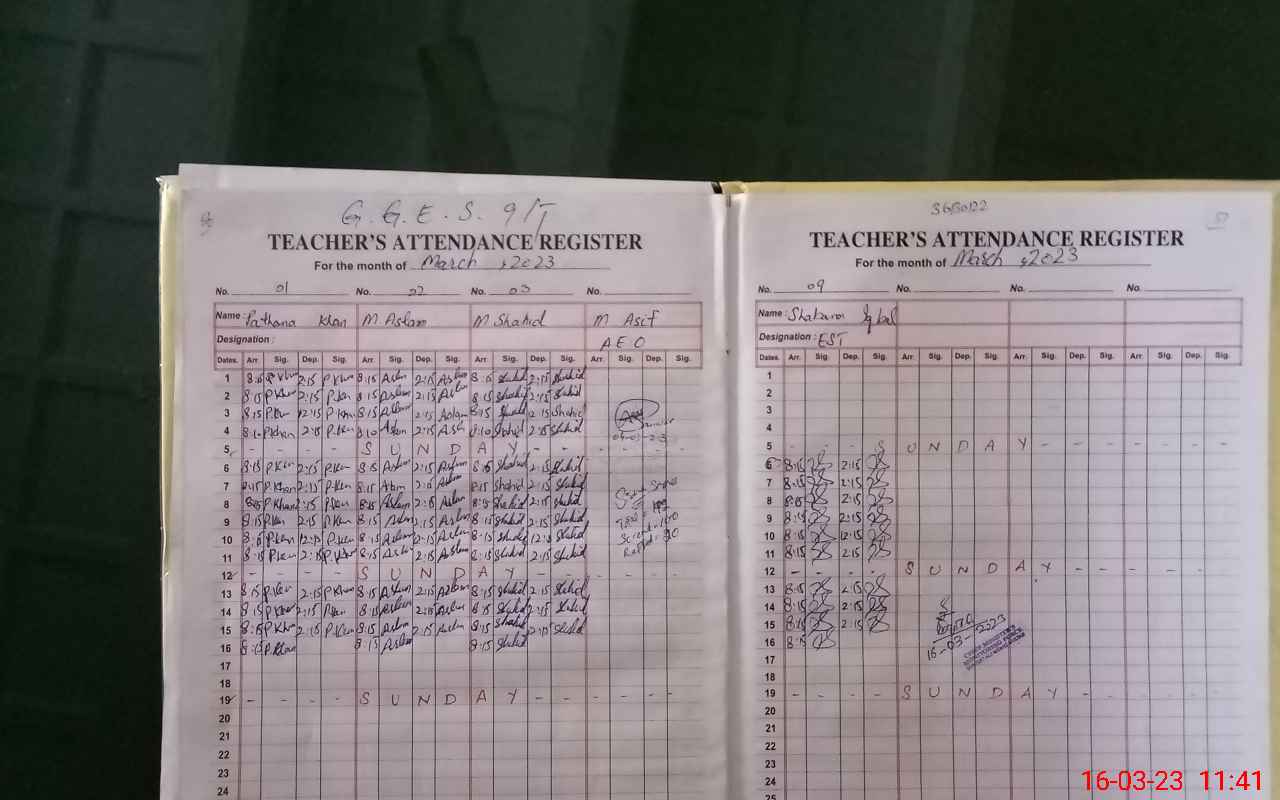 G. G. E. S. 9/T
TEACHER'S ATTENDANCE REGISTER
For the month of March , 2023
No. 01 No. 02 No. 03 No.
Name : Pathana Khan M Aslam M Shahid M Asif
Designation : A E O
Dates. Arr. Sig. Dep. Sig. Arr. Sig. Dep. Sig. Arr. Sig. Dep. Sig. Arr. Sig. Dep. Sig.
1 8:15 P.Khan 2:15 P.Khan 8:15 Aslam 2:15 Aslam 8:15 Shahid 2:15 Shahid
2 8:15 P.Khan 2:15 P.Khan 8:15 Aslam 2:15 Aslam 8:15 Shahid 2:15 Shahid
3 8:15 P.Khan 2:15 P.Khan 8:15 Aslam 2:15 Aslam 8:15 Shahid 2:15 Shahid
4 8:10 P.Khan 2:15 P.Khan 8:10 Aslam 2:15 Aslam 8:10 Shahid 2:15 Shahid
5 - - - - S U N D A Y - - - - - -
6 8:15 P.Khan 2:15 P.Khan 8:15 Aslam 2:15 Aslam 8:15 Shahid 2:15 Shahid
7 8:15 P.Khan 2:15 P.Khan 8:15 Aslam 2:15 Aslam 8:15 Shahid 2:15 Shahid
8 8:15 P.Khan 2:15 P.Khan 8:15 Aslam 2:15 Aslam 8:15 Shahid 2:15 Shahid
9 8:15 P.Khan 2:15 P.Khan 8:15 Aslam 2:15 Aslam 8:15 Shahid 2:15 Shahid
10 8:15 P.Khan 12:15 P.Khan 8:15 Aslam 12:15 Aslam 8:15 Shahid 12:15 Shahid
11 8:15 P.Khan 2:15 P.Khan 8:15 Aslam 2:15 Aslam 8:15 Shahid 2:15 Shahid
12 - - - - S U N D A Y - - - - - -
13 8:15 P.Khan 2:15 P.Khan 8:15 Aslam 2:15 Aslam 8:15 Shahid 2:15 Shahid
14 8:15 P.Khan 2:15 P.Khan 8:15 Aslam 2:15 Aslam 8:15 Shahid 2:15 Shahid
15 8:15 P.Khan 2:15 P.Khan 8:15 Aslam 2:15 Aslam 8:15 Shahid 2:15 Shahid
16 8:15 P.Khan 8:15 Aslam 8:15 Shahid
17
18
19 - - - - S U N D A Y - - - - - -
20
21
22
23
24
TEACHER'S ATTENDANCE REGISTER
For the month of March , 2023
No. 09 No. No. No.
Name : Iqbal
Designation : EST
Dates. Arr. Sig. Dep. Sig. Arr. Sig. Dep. Sig. Arr. Sig. Dep. Sig. Arr. Sig. Dep. Sig.
1
2
3
4
5 - - - S U N D A Y - - - - - - -
6 8:15 2:15
7 8:15 2:15
8 8:15 2:15
9 8:15 2:15
10 8:15 12:15
11 8:15 2:15
12 - - - - S U N D A Y - - - - - -
13 8:15 2:15
14 8:15 2:15
15 8:15 2:15
16 8:15
16-03-2023
17
18
19 - - - - S U N D A Y - - - - - -
20
21
22
23
24
25
16-03-23 11:41